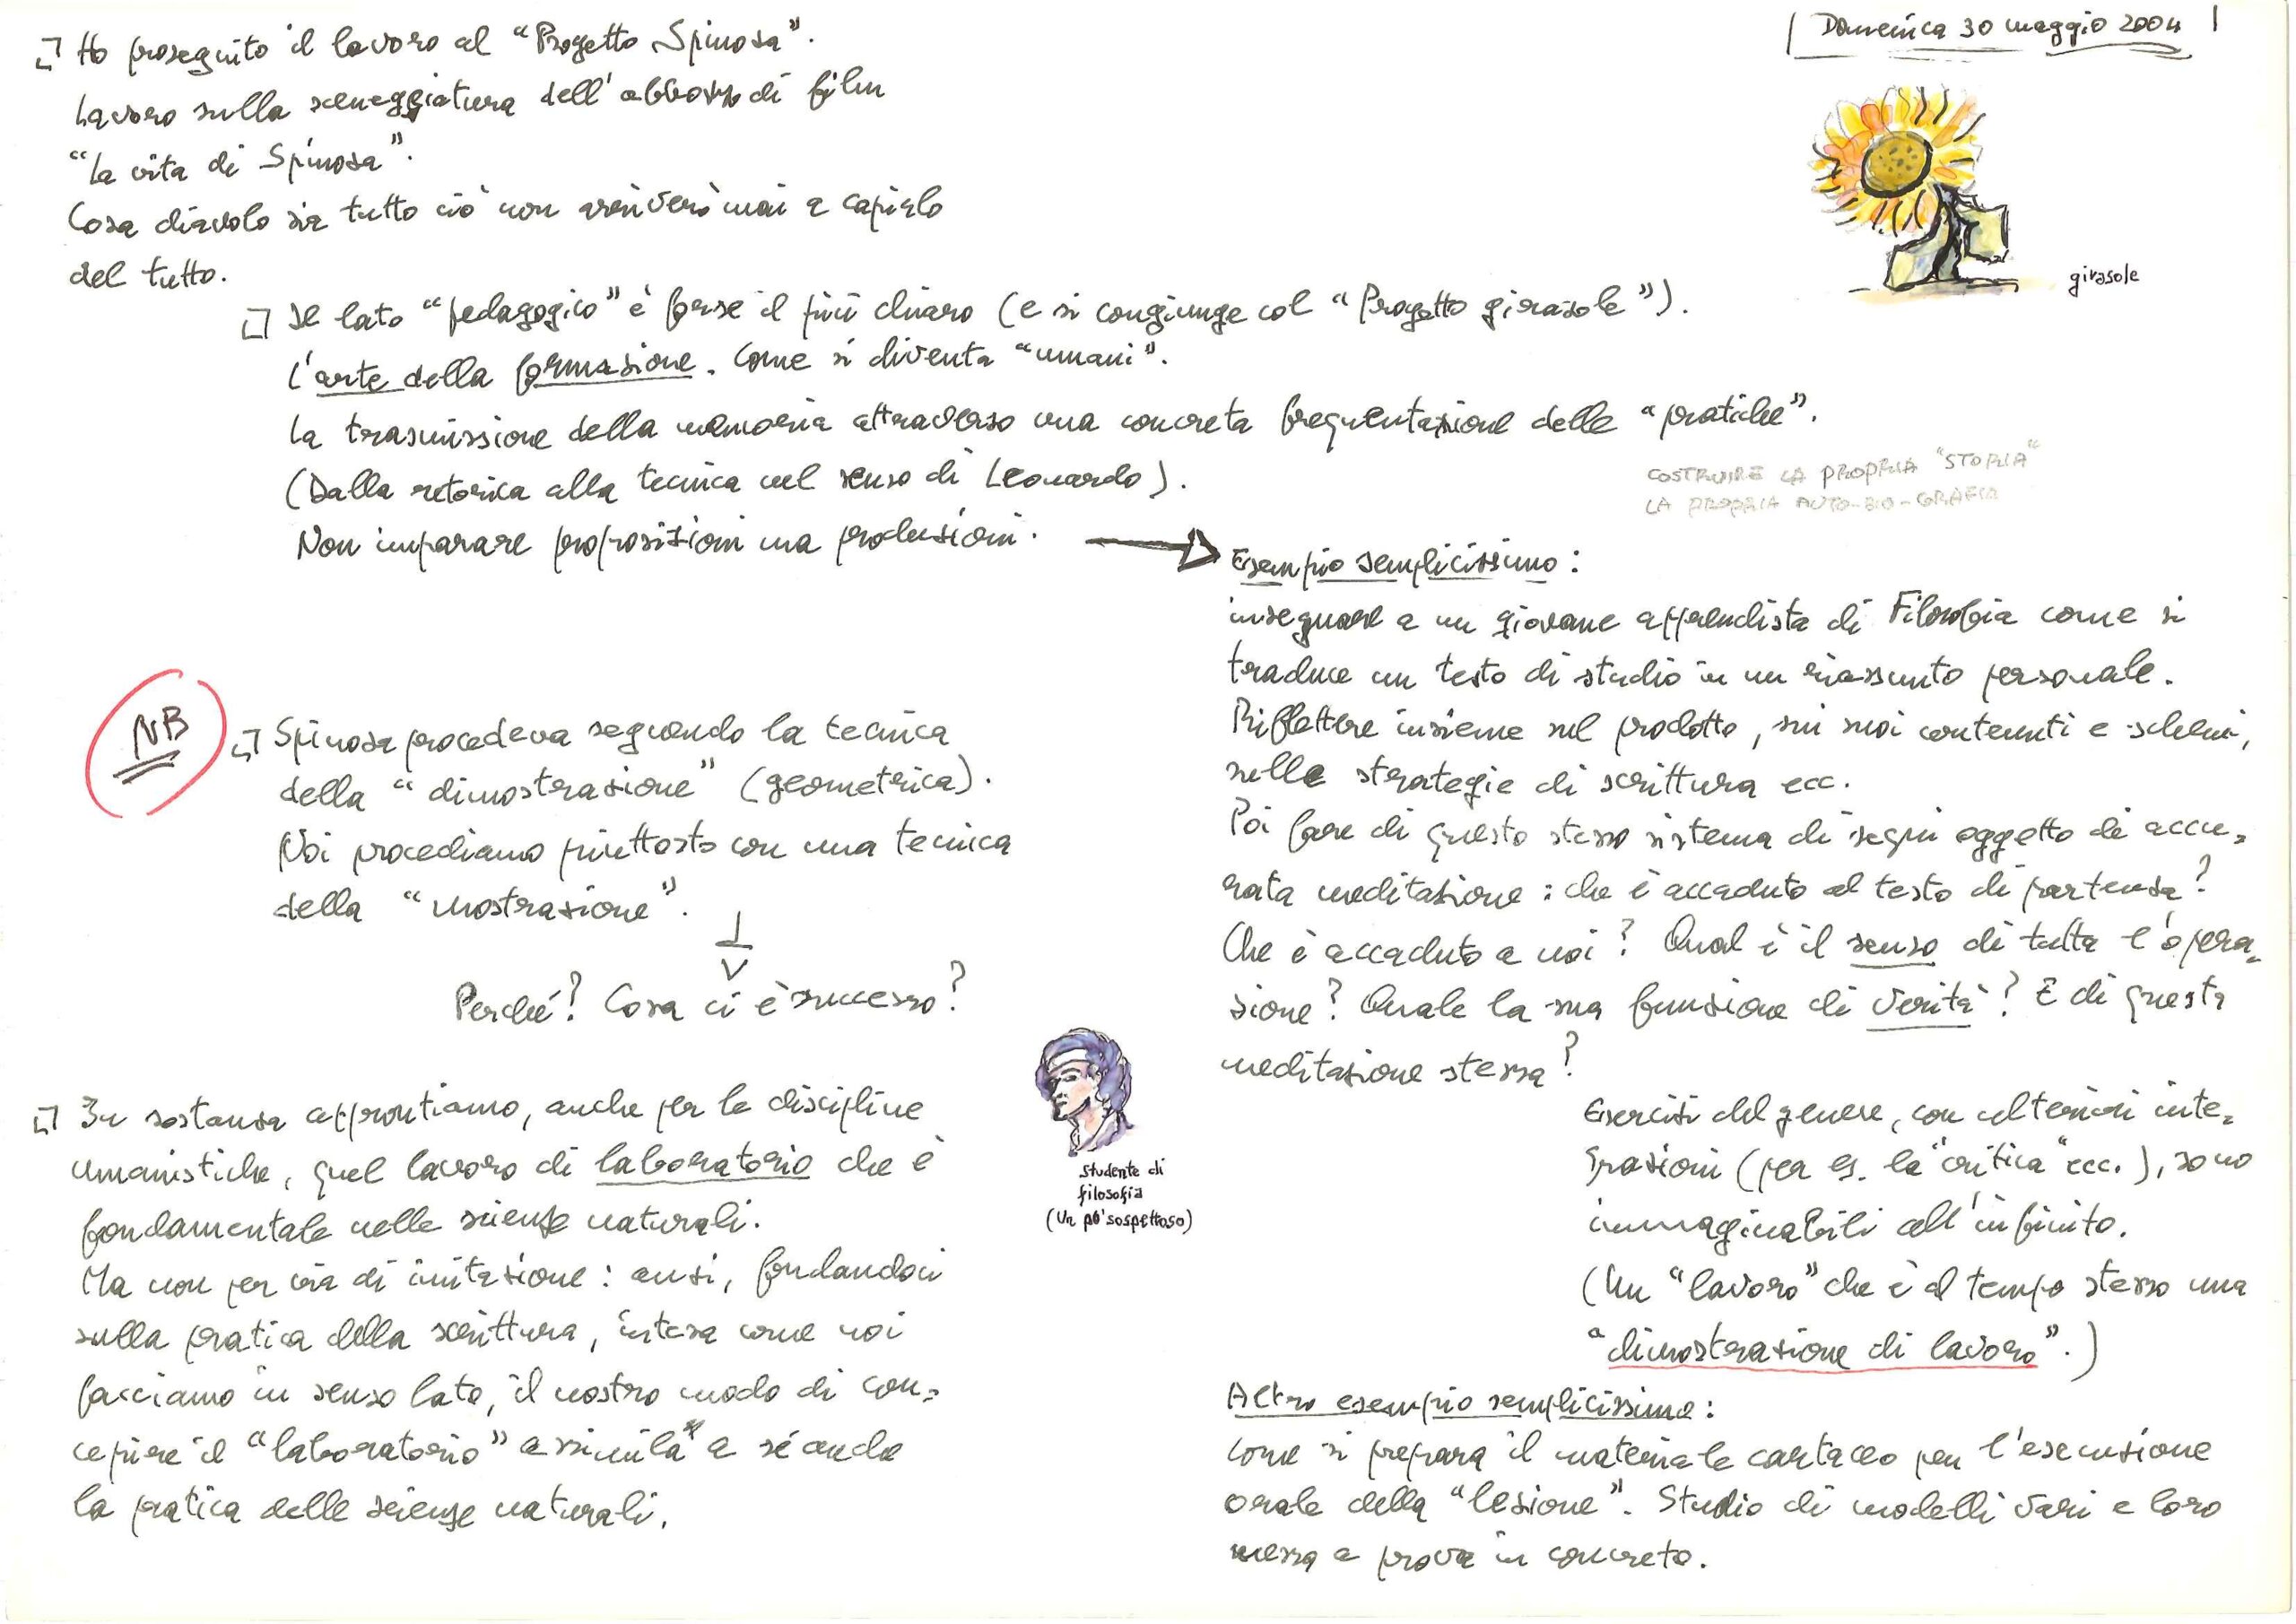 Domenica 30 maggio 2004
Ho proseguito il lavoro al “Progetto Spinoza”.
Lavoro sulla sceneggiatura dell'abbozzo di film
“La vita di Spinoza”.
Cosa diavolo sia tutto ciò non arriverò mai a capirlo
del tutto.
girasole
Il lato “pedagogico” è forse il più chiaro (e si congiunge col “Progetto girasole”).
L'arte della formazione. Come si diventa “umani”.
La trasmissione della memoria attraverso una concreta frequentazione delle “pratiche”.
(Dalla retorica alla tecnica nel senso di Leonardo).
Non imparare proposizioni ma produzioni.
COSTRUIRE LA PROPRIA “STORIA”
LA PROPRIA AUTO-BIO-GRAFIA
Esempio semplicissimo:
insegnare a un giovane apprendista di Filosofia come si
traduce un testo di studio in un riassunto personale.
Riflettere insieme sul prodotto, sui suoi contenuti e schemi,
sulle strategie di scrittura ecc.
Poi fare di questo stesso sistema di segni oggetto di accu=
rata meditazione: che è accaduto al testo di partenza?
Che è accaduto a noi? Qual è il senso di tutta l'opera=
zione? Quale la sua funzione di verità? E di questa
meditazione stessa?
Esercizi del genere, con ulteriori inte=
grazioni (per es. la “critica” ecc.), sono
immaginabili all'infinito.
(Un “lavoro” che è al tempo stesso una
“dimostrazione di lavoro”.)
Altro esempio semplicissimo:
come si prepara il materiale cartaceo per l'esecuzione
orale della “lezione”. Studio di modelli vari e loro
messa a prova in concreto.
NB
Spinoza procedeva seguendo la tecnica
della “dimostrazione” (geometrica).
Noi procediamo piuttosto con una tecnica
della “mostrazione”.
Perché? Cosa ci è successo?
studente di
filosofia
(un po' sospettoso)
In sostanza approntiamo, anche per le discipline
umanistiche, quel lavoro di laboratorio che è
fondamentale nelle scienze naturali.
Ma non per via di imitazione: anzi, fondandoci
sulla pratica della scrittura, intesa come noi
facciamo in senso lato, il nostro modo di con=
cepire il “laboratorio” assimila a sé anche
la pratica delle scienze naturali.